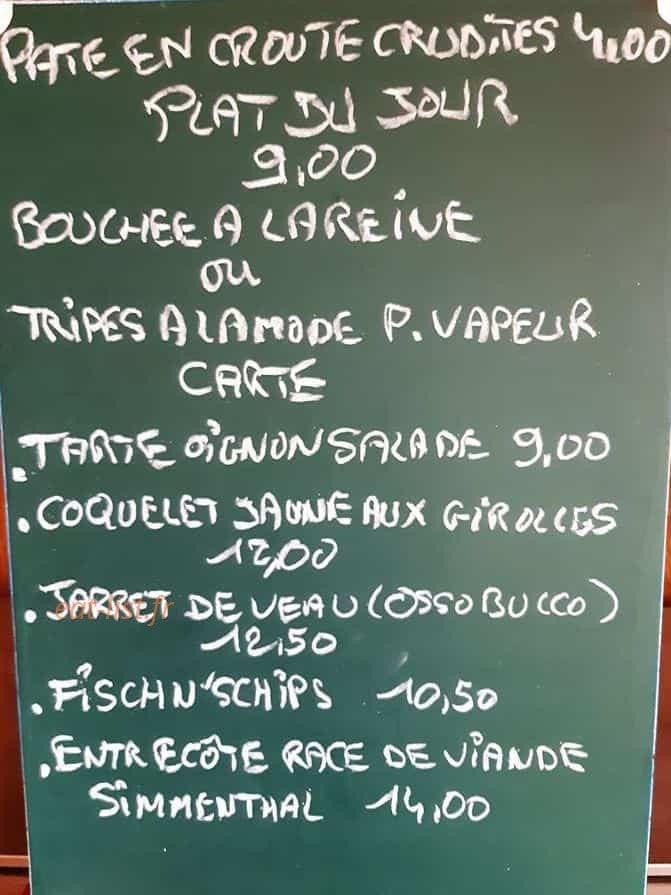 PATE EN CROUTE CRUDITES 4,00
PLAT DU JOUR
9,00
BOUCHEE A LA REINE
ou
TRIPES A LA MODE P. VAPEUR
CARTE
. TARTE OiGNON SALADE 9,00
. COQUELET JAUNE AUX GIROLLES
12,00
. JARRET DE VEAU (OSSO BUCCO)
eat-list.fr
12,50
. FiSCHN'SCHiPS 10,50
. ENTRECÔTE RACE DE ViANDE
SiMMENTHAL 14,00